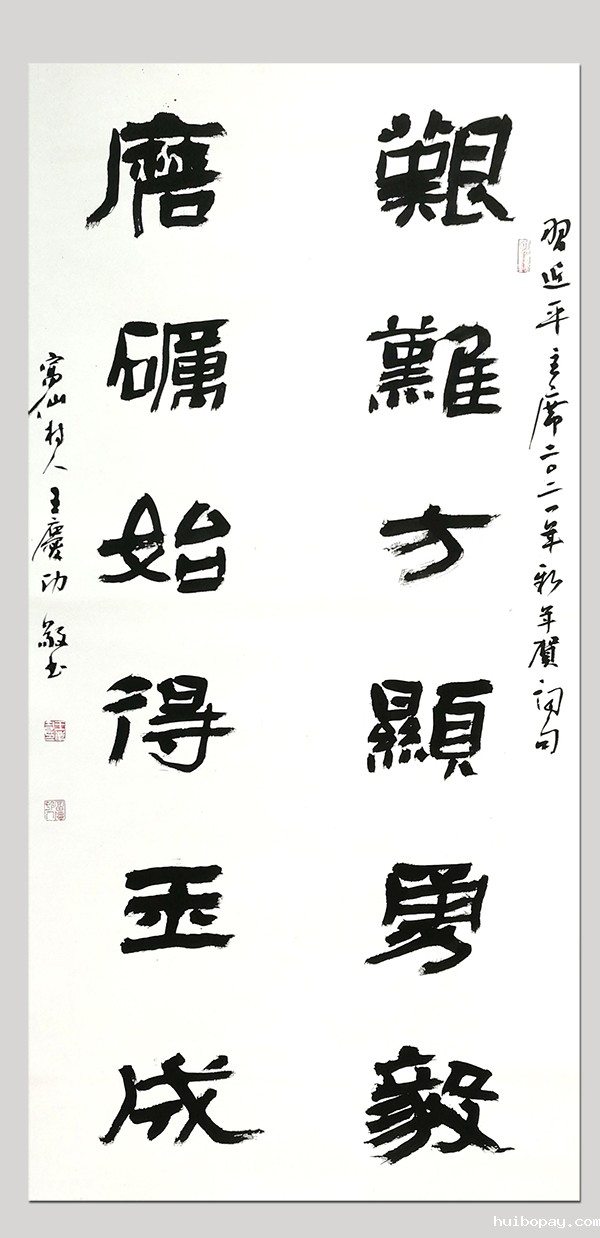 習近平主席二〇二一年新年賀詞句
艱難方顯勇毅
磨礪始得玉成
寓仙村人王慶功敬书
huibopay.com